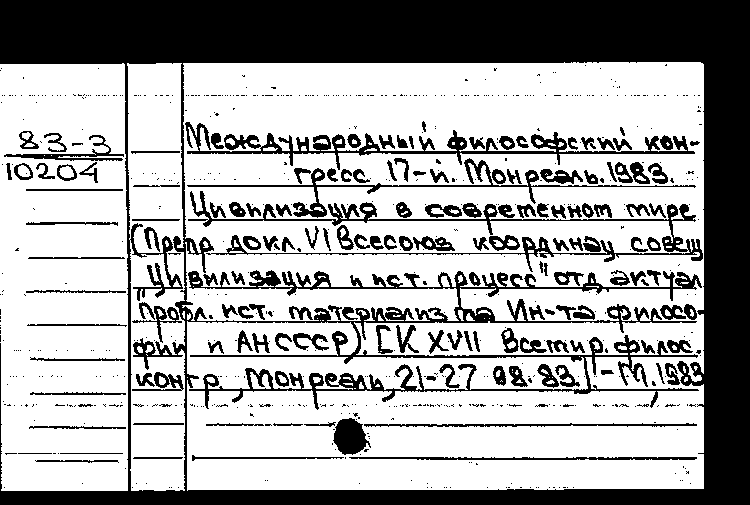 83-3
10204
Международный философский кон-
гресс, 17-й. Монреаль. 1983.
Цивилизация в современном мире
(Препр докл. VI Всесоюз координац совещ
"Цивилизация и ист. процесс" отд актуал
пробл. ист. материализма Ин-та филосо-
фии и АН СССР). [К XVII Всемир. филос.
конгр., Монреаль, 21-27 08. 83.]. - М., 1983